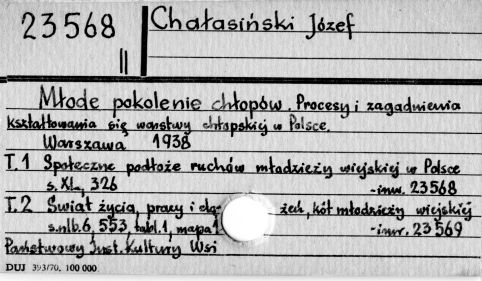 23568
II
Chałasiński Józef
Młode pokolenie chłopów. Procesy i zagadnienia
kształtowania się warstwy chłopskiej w Polsce.
Warszawa 1938
T.1 Społeczne podłoże ruchów młodzieży wiejskiej w Polsce
s. XL, 326 -inw. 23568
T.2 Świat życia, pracy i dą żeń, kół młodzieży wiejskiej
s.nlb.6, 553, tabl.1, mapa 1 -inw. 23569
Państwowy Inst. Kultury Wsi
DUJ 393/70. 100 000